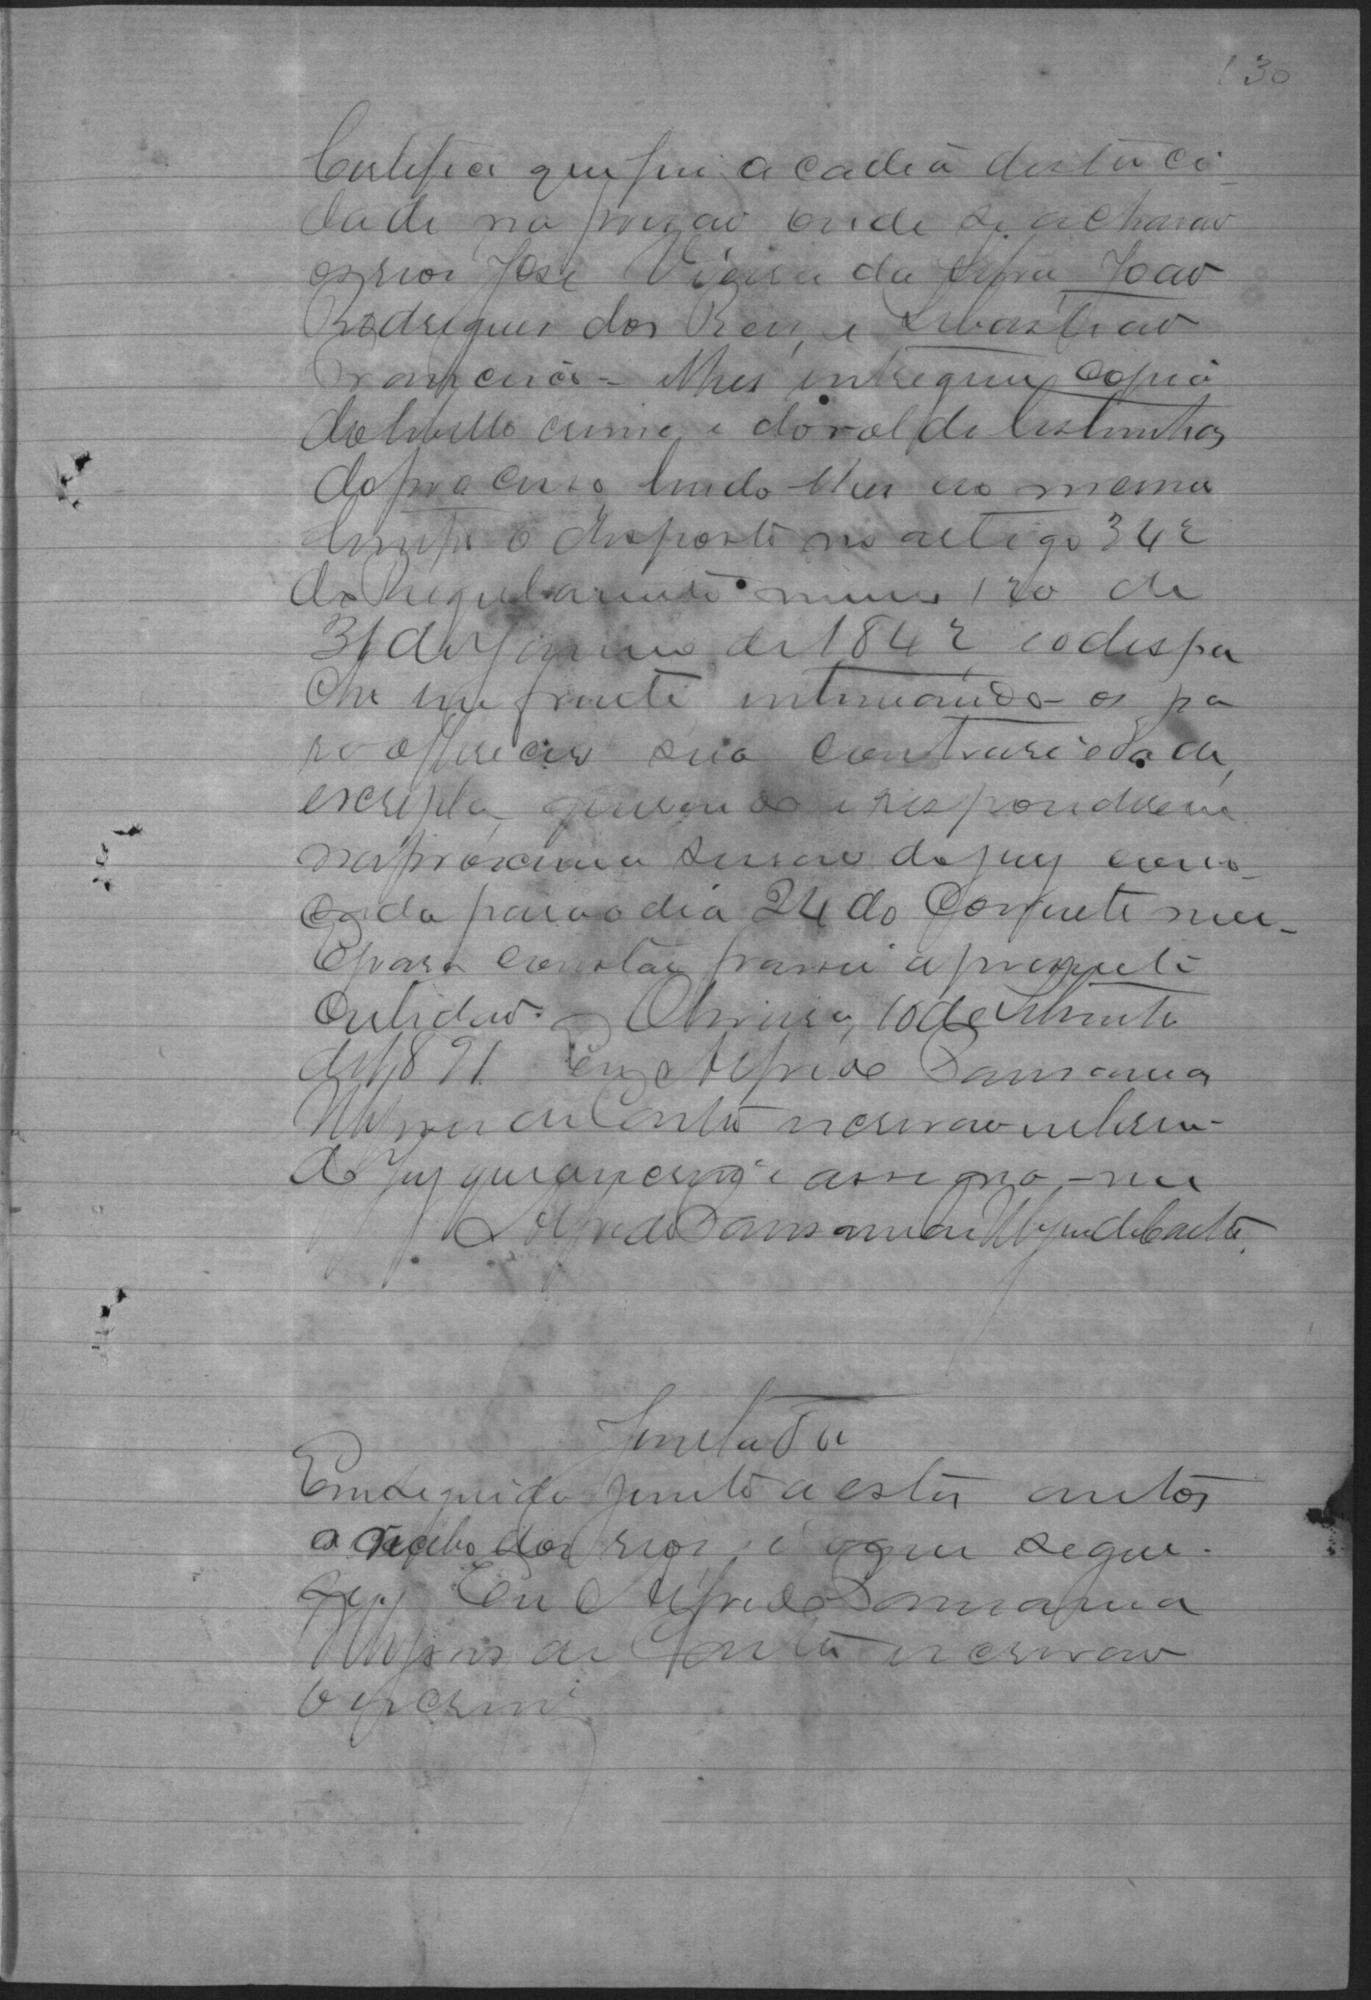 130
Certifico que fui a cadeia desta ci-
dade na prizão onde se acharão
os reos José Vieira da Silva, João
Rodrigues dos Reis, e Sebastião
Francisco - lhes entreguei copia
do libello crime e do rol de testimunhas
do processo, lendo-lhes ao mesmo
tempo o disposto no artigo 342
do Regulamento numero 120 de
31 de Janeiro de 1842 e o despa
cho em frente intimando-os pa
ra offerecer sua contrariedade,
escripta, querendo e responderem
na proxima sessão do jury convo-
cada para o dia 24 do corrente mez-
E para constar passei a presente
certidão. Oliveira, 10 de
de 1891 Eu Alfredo
de Castro escrivão interino
do Jury que o escrevi e assigno-me
Alfredo de Castro.
Juntada
Em seguida junto a estes autos
o recibo dos reos, e o que segue.
Eu Alfredo
de Castro escrivão
o escrevi